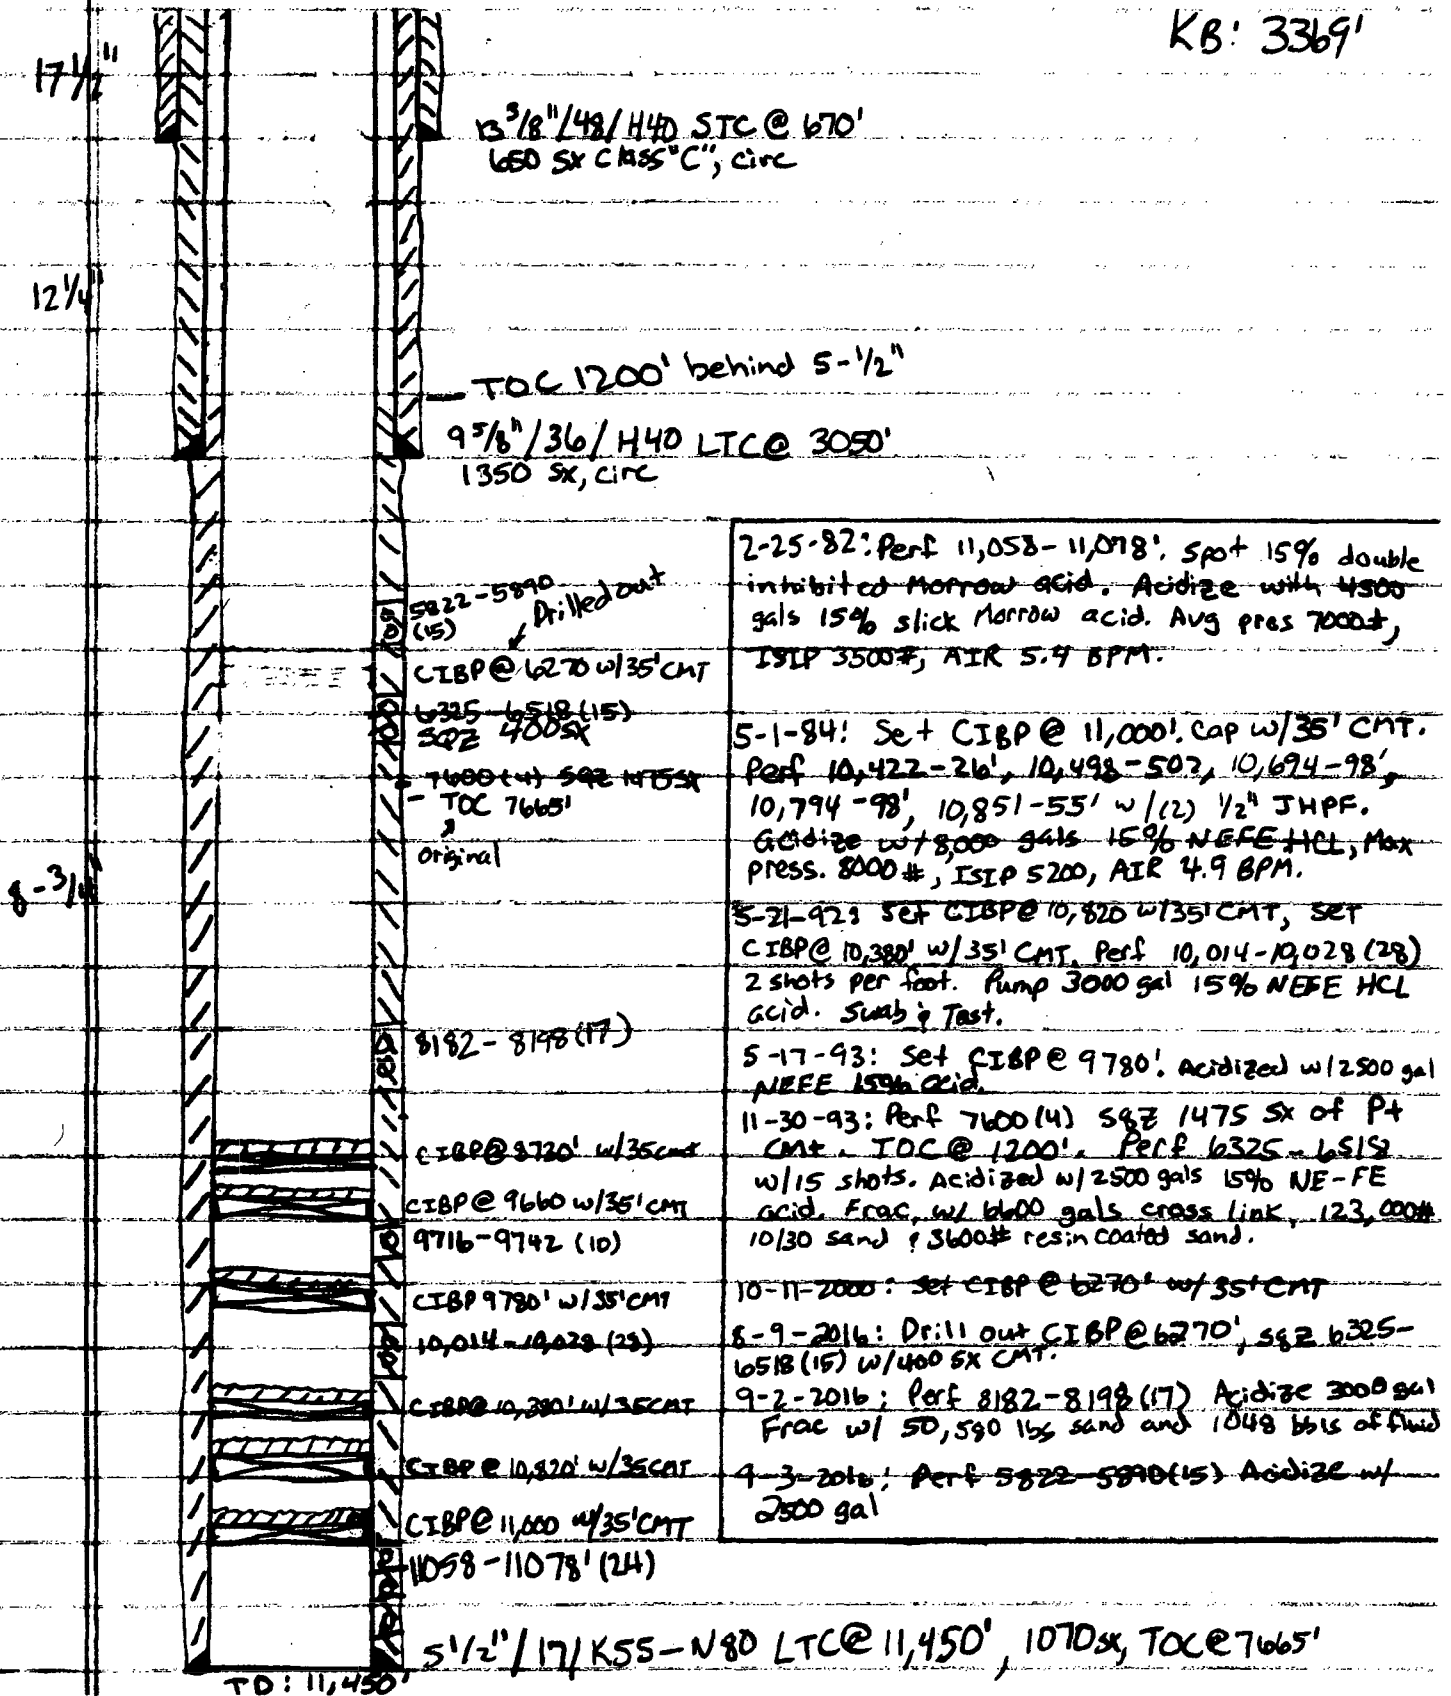 KB: 3369'
17 1/2"
13 3/8"/48/H40 STC @ 670'
650 SX Class "C", circ
12 1/4"
TOC 1200' behind 5-1/2"
9 5/8"/36/H40 LTC @ 3050'
1350 SX, circ
5822-5890
(15)
Drilled out
CIBP @ 6270 w/35' CMT
6325-6518 (15)
SQZ 400SX
7600 (4) SQZ 1475SX
TOC 7665'
original
8-3/4"
8182-8198 (17)
CIBP@ 8720' w/35cmt
CIBP @ 9660 w/35' CMT
9716-9742 (10)
CIBP 9780' w/35' CMT
10,014-10,028 (28)
CIBP@ 10,380' w/35CMT
CIBP @ 10,820' w/35CMT
CIBP@ 11,000 w/35'CMT
11058-11078' (24)
5 1/2"/17/K55-N80 LTC@ 11,450', 1070sx, TOC@7665'
TD: 11,450'
2-25-82: Perf 11,058-11,078'. Spot 15% double
inhibited Morrow acid. Acidize with 4500
gals 15% slick Morrow acid. Avg pres 7000#,
ISIP 3500#, AIR 5.4 BPM.
5-1-84: Set CIBP @ 11,000'. Cap w/35' CMT.
Perf 10,422-26', 10,498-502, 10,694-98',
10,794-98', 10,851-55' w/(2) 1/2" JHPF.
Acidize w/8,000 gals 15% NEFE HCL, Max
press. 8000#, ISIP 5200, AIR 4.9 BPM.
5-21-92: Set CIBP@ 10,820 w/35' CMT, SET
CIBP@ 10,380' w/35' CMT. Perf 10,014-10,028 (28)
2 shots per foot. Pump 3000 gal 15% NEFE HCL
acid. Swab & Test.
5-17-93: Set CIBP@ 9780'. Acidized w/2500 gal
NEFE 15% acid.
11-30-93: Perf 7600 (4) sqz 1475 SX of P+
CMt. TOC @ 1200'. Perf 6325-6518
w/15 shots. Acidized w/2500 gals 15% NE-FE
acid. Frac, w/ 6600 gals cross link, 123,000#
10/30 sand & 3600# resin coated sand.
10-11-2000: Set CIBP @ 6270' w/35' CMT
8-9-2016: Drill out CIBP @ 6270', sqz 6325-
6518 (15) w/400 SX CMT.
9-2-2016: Perf 8182-8198 (17) Acidize 3000 gal
Frac w/ 50,580 lbs sand and 1048 bbls of fluid
9-3-2016: Perf 5822-5890 (15) Acidize w/
2500 gal